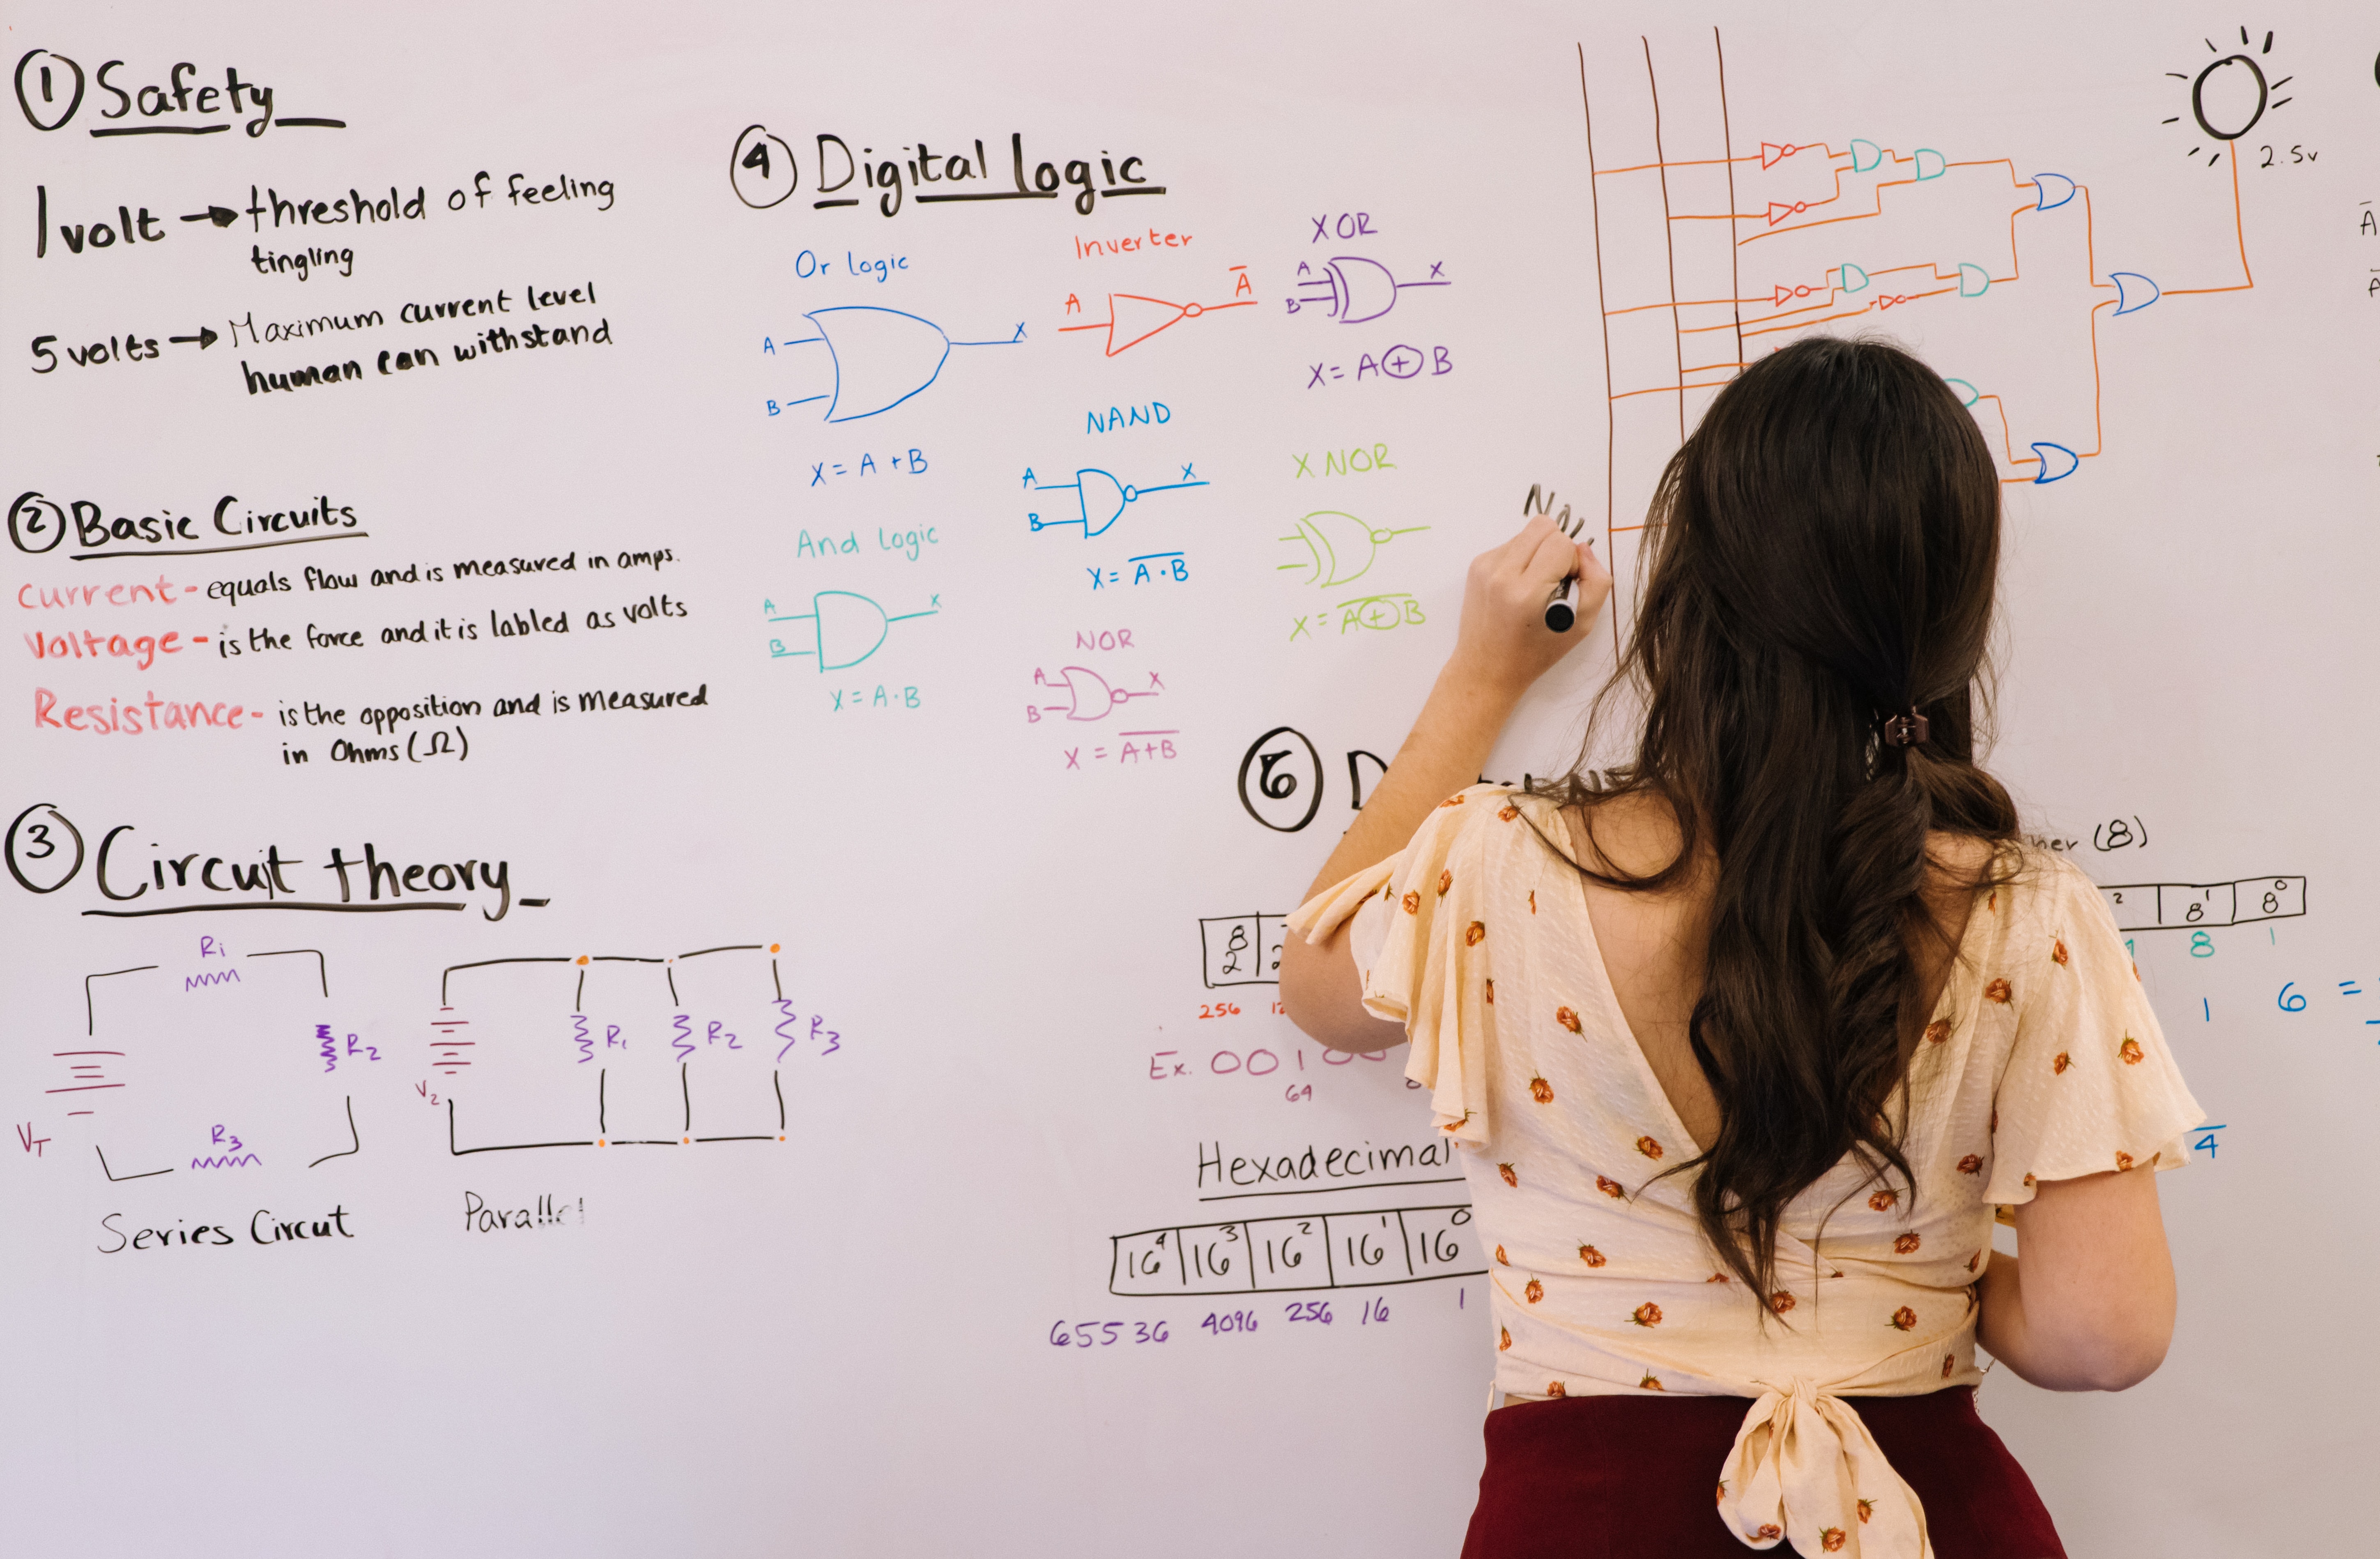 ① Safety
1 volt → threshold of feeling
tingling
5 volts → Maximum current level
human can withstand
② Basic Circuits
Current - equals flow and is measured in amps.
Voltage - is the force and it is labled as volts
Resistance - is the opposition and is measured
in Ohms (Ω)
③ Circuit theory
R1
R2
R3
VT
Series Circut
R1
R2
R3
V2
Parallel
④ Digital logic
Or logic
A
B
X
X = A + B
And Logic
A
B
X
X = A · B
Inverter
A
A̅
NAND
A
B
X
X = A̅ ̅·̅ ̅B̅
NOR
A
B
X
X = A̅+̅B̅
XOR
A
B
X
X = A ⊕ B
X NOR
X = A̅ ̅⊕̅ ̅B̅
2.5v
A̅
(8)
8¹ 8⁰
8 1
1 6 =
4
256
Ex. 0 0 1 0 0
64
Hexadecimal
16⁴ 16³ 16² 16¹ 16⁰
65536 4096 256 16 1